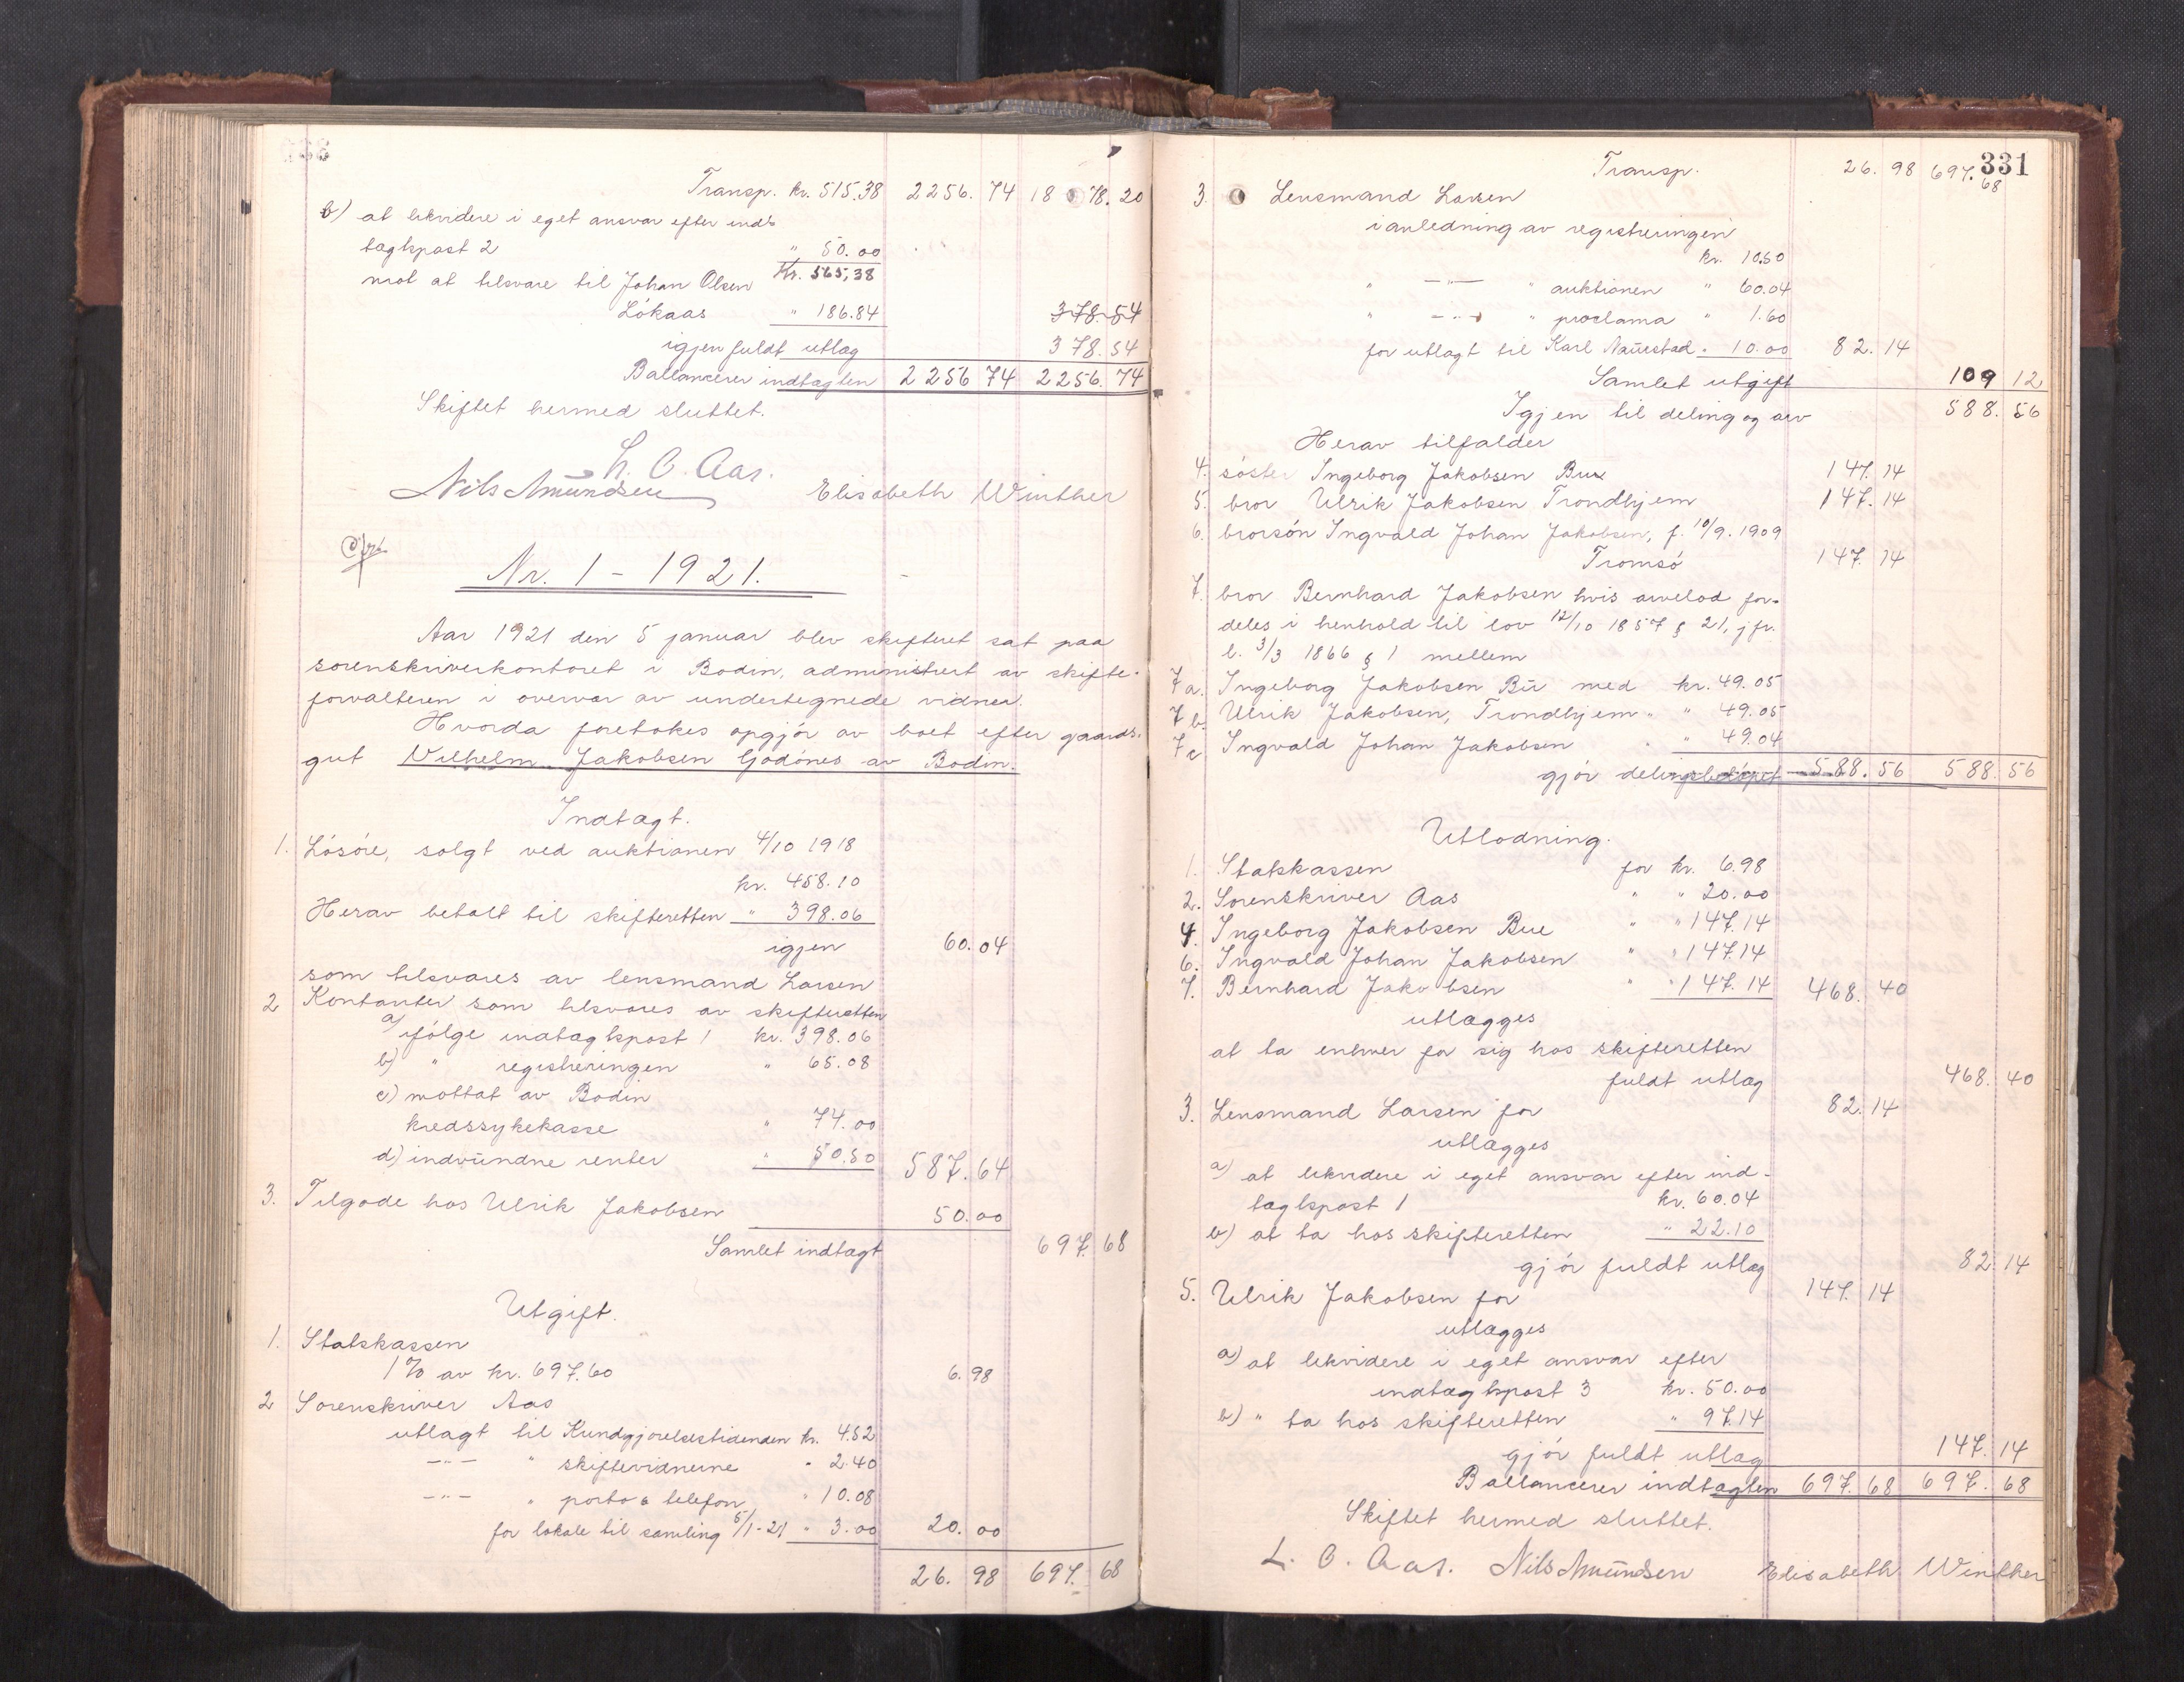 Transp. kr. 515.38 2256.74 1878.20
b) at likvidere i eget ansvar efter ind-
tægtspost 2 " 50.00
Kr. 565,38
mot at tilsvare til Johan Olsen
Lökaas " 186.84 378.54
igjen fuldt utlæg 378.54
Ballancerer indtægten 2256 74 2256.74
Skiftet hermed sluttet.
L. O. Aas.
Nils Amundsen Elisabeth Winther
Nr. 1 - 1921.
Aar 1921 den 5 januar blev skifteret sat paa
sorenskriverkontoret i Bodin, administrert av skifte-
forvalteren i overvær av undertegnede vidner.
Hvorda foretokes opgjör av boet efter gaards-
gut Vilhelm Jakobsen Godönes av Bodin.
Indtægt.
1. Lösöre, solgt ved auktionen 4/10 1918
kr. 458.10
Herav betalt til skifteretten " 398.06
igjen 60.04
som tilsvares av lensmand Larsen
2 Kontanter som tilsvares av skifteretten
a) ifölge indtægtspost 1 kr. 398.06
b) " registreringen " 65.08
c) mottat av Bodin
kredssykekasse " 74.00
d) indvundne renter " 50.50 587.64
3. Tilgode hos Ulrik Jakobsen 50.00
Samlet indtægt 697.68
Utgift.
1. Statskassen
1% av kr. 697.60 6.98
2 Sorenskriver Aas
utlagt til Kundgjörelsestidenden kr. 4.52
—"— " skiftevidnerne " 2.40
—"— " porto & telefon " 10.08
for lokale til samling 5/1-21 " 3.00 20.00
26.98 697.68
331
Transp. 26.98 697.68
3. Lensmand Larsen
i anledning av registreringen
kr. 10.50
" —"— " auktionen " 60.04
" —"— " proclama " 1.60
for utlagt til Karl Nauestad " 10.00 82.14
Samlet utgift 109 12
Igjen til deling og arv 588.56
Herav tilfalder
4. söster Ingeborg Jakobsen Bue 147.14
5. bror Ulrik Jakobsen Trondhjem 147.14
6. brorsön Ingvald Johan Jakobsen, f. 10/9. 1909
Tromsö 147.14
7. bror Bernhard Jakobsen hvis arvelod for-
deles i henhold til lov 12/10 1857 § 21, jfr.
l. 3/3 1866 § 1 mellem
7a. Ingeborg Jakobsen Bu med kr. 49.05
7b. Ulrik Jakobsen, Trondhjem " " 49.05
7c Ingvald Johan Jakobsen " " 49.04
gjör delingsbelöpet 588.56 588.56
Utlodning.
1. Statskassen for kr. 6.98
2. Sorenskriver Aas " " 20.00
4. Ingeborg Jakobsen Bue " " 147.14
6. Ingvald Johan Jakobsen " " 147.14
7. Bernhard Jakobsen " " 147.14 468.40
utlægges
at ta enhver for sig hos skifteretten
fuldt utlæg 468.40
3. Lensmand Larsen for 82.14
utlægges
a) at likvidere i eget ansvar efter ind-
tægtspost 1 kr. 60.04
b) at ta hos skifteretten " 22.10
gjör fuldt utlæg 82.14
5. Ulrik Jakobsen for 147.14
utlægges
a) at likvidere i eget ansvar efter
indtægtspost 3 kr. 50.00
b) " ta hos skifteretten " 97.14
gjör fuldt utlæg 147.14
Ballancerer indtægten 697.68 697.68
Skiftet hermed sluttet.
L. O. Aas. Nils Amundsen Elisabeth Winther